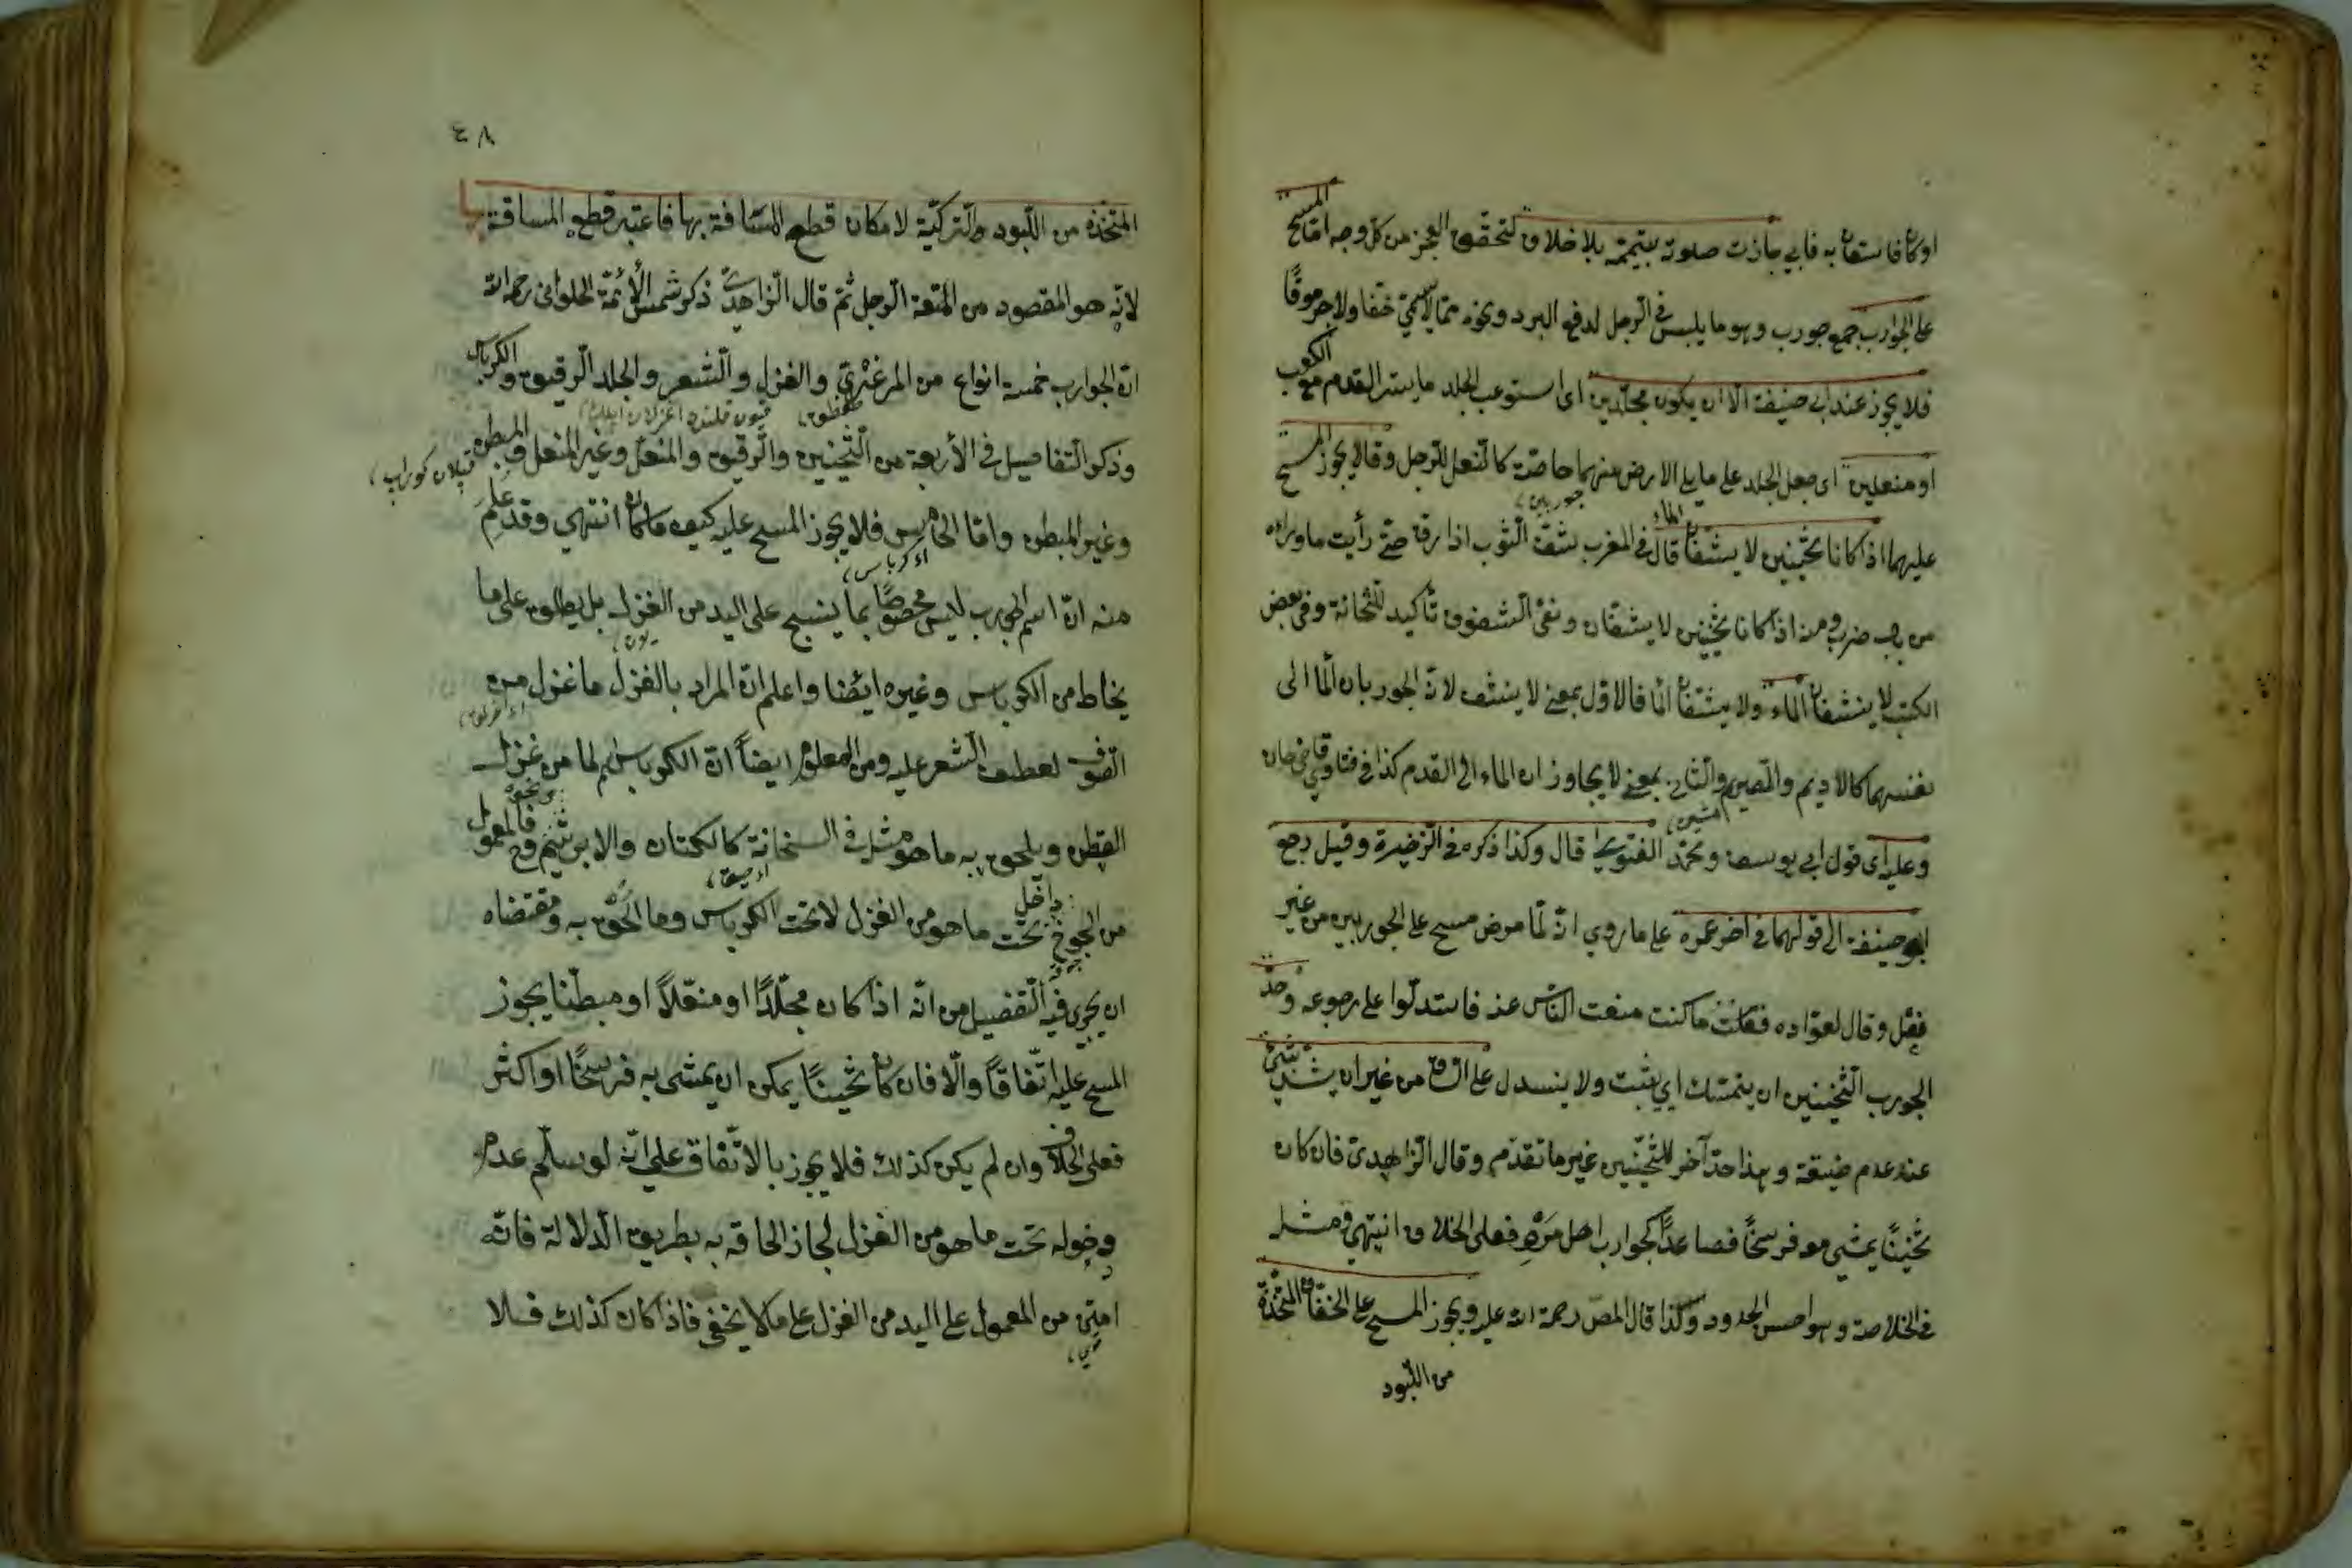 او كان فاستعان به فابي جازت صلوته بتيممه بلا خلاف لتحقق العجز من كل وجه اما المسح
على الجوارب جمع جورب وهو ما يلبس في الرجل لدفع البرد ونحوه مما لا يسمى خفا ولا جرموقًا
فلا يجوز عند ابي حنيفة الا ان يكون مجلدين اى استوعب الجلد ما يستر القدم مع الكعب
او منعلين اى جعل الجلد على ما يلي الارض منهما خاصة كالنعل للرجل وقالا يجوز المسح
عليهما اذا كانا ثخينين لا يشفان الماء قال في المغرب شف الثوب اذا رق حتى رأيت ماوراءه
جوربين
من باب ضرب ومنه اذا كانا ثخينين لا يشفان ونفى الشفوف تأكيد للثخانة وفي بعض
الكتب لا ينشفان الماء ولا يشفان اما فالاول بمعنى لا ينشف لان الجوربان الماء الى
نفسهما كالاديم والصرم والثاني بمعنى لا يجاوزان الماء الى القدم كذا في فتاوى قاضي خان
وعليه اى قول ابي يوسف ومحمد الفتوى قال وكذا ذكره في الذخيرة وقيل رجع
ابو حنيفة الى قولهما في اخر عمره على ما روي انه لما مرض مسح على الجوربين من غير
نعل وقال لعواده فعلت ما كنت منعت الناس عنه فاستدلوا على رجوعه وحد
الجورب الثخينين ان يتمسك اي يثبت ولا ينسدل على الساق من غير ان يشد بشئ
عند عدم ضيقه وهذا حد آخر للثخينين غير ما تقدم وقال الزاهدى فان كان
ثخينًا يمشي معه فرسخًا فصاعدًا كجوارب اهل مرو فعلى الخلاف انتهى ومثله
في الخلاصة وهو احسن الحدود وكذا قال المص رحمة الله عليه ويجوز المسح على الخفاف المتخذة
من اللبود
٤٨
المتخذه من اللبود والتركية لامكان قطع المسافة بها فاعتبر قطع المسافة بها
لانه هو المقصود من المتعة الرجل ثم قال الزاهدى ذكر شمس الأئمة الحلوانى رحمه الله
ان الجوارب خمسة انواع من المرعزي والغزل والشعر والجلد الرقيق والكرباس
وذكر التفاصيل في الأربعة من الثخينين والرقيق والمنعل وغير المنعل والمبطن
وغير المبطن واما الخامس فلا يجوز المسح عليه كيف ما كان انتهى وقد علم
منه ان اسم الجورب ليس مخصوصًا بما ينسج على اليد من الغزل بل يطلق على ما
يخاط من الكرباس وغيره ايضا واعلم ان المراد بالغزل ما غزل من
الصوف لعطف الشعر عليه ومن المعلوم ايضاً ان الكرباس اسم لما من غزل
القطن ويلحق به ما هو مثله في السخانة كالكتان والابريشم ونحوه فالمعمول
من الجوخ داخل تحت ما هو من الغزل لا تحت الكرباس وما الحق به ومقتضاه
ان يجرى فيه التفصيل من انه اذا كان مجلدًا او منعلاً او مبطنا يجوز
المسح عليه اتفاقاً والا فان كان ثخينًا يمكن ان يمشى به فرسخًا او اكثر
فعلى الخلاف وان لم يكن كذلك فلا يجوز بالاتفاق على انه لو سلم عدم
دخوله تحت ما هو من الغزل لجاز الحاقه به بطريق الدلالة فانه
امتن من المعمول على اليد من الغزل على ما لا يخفى فاذا كان كذلك فلا